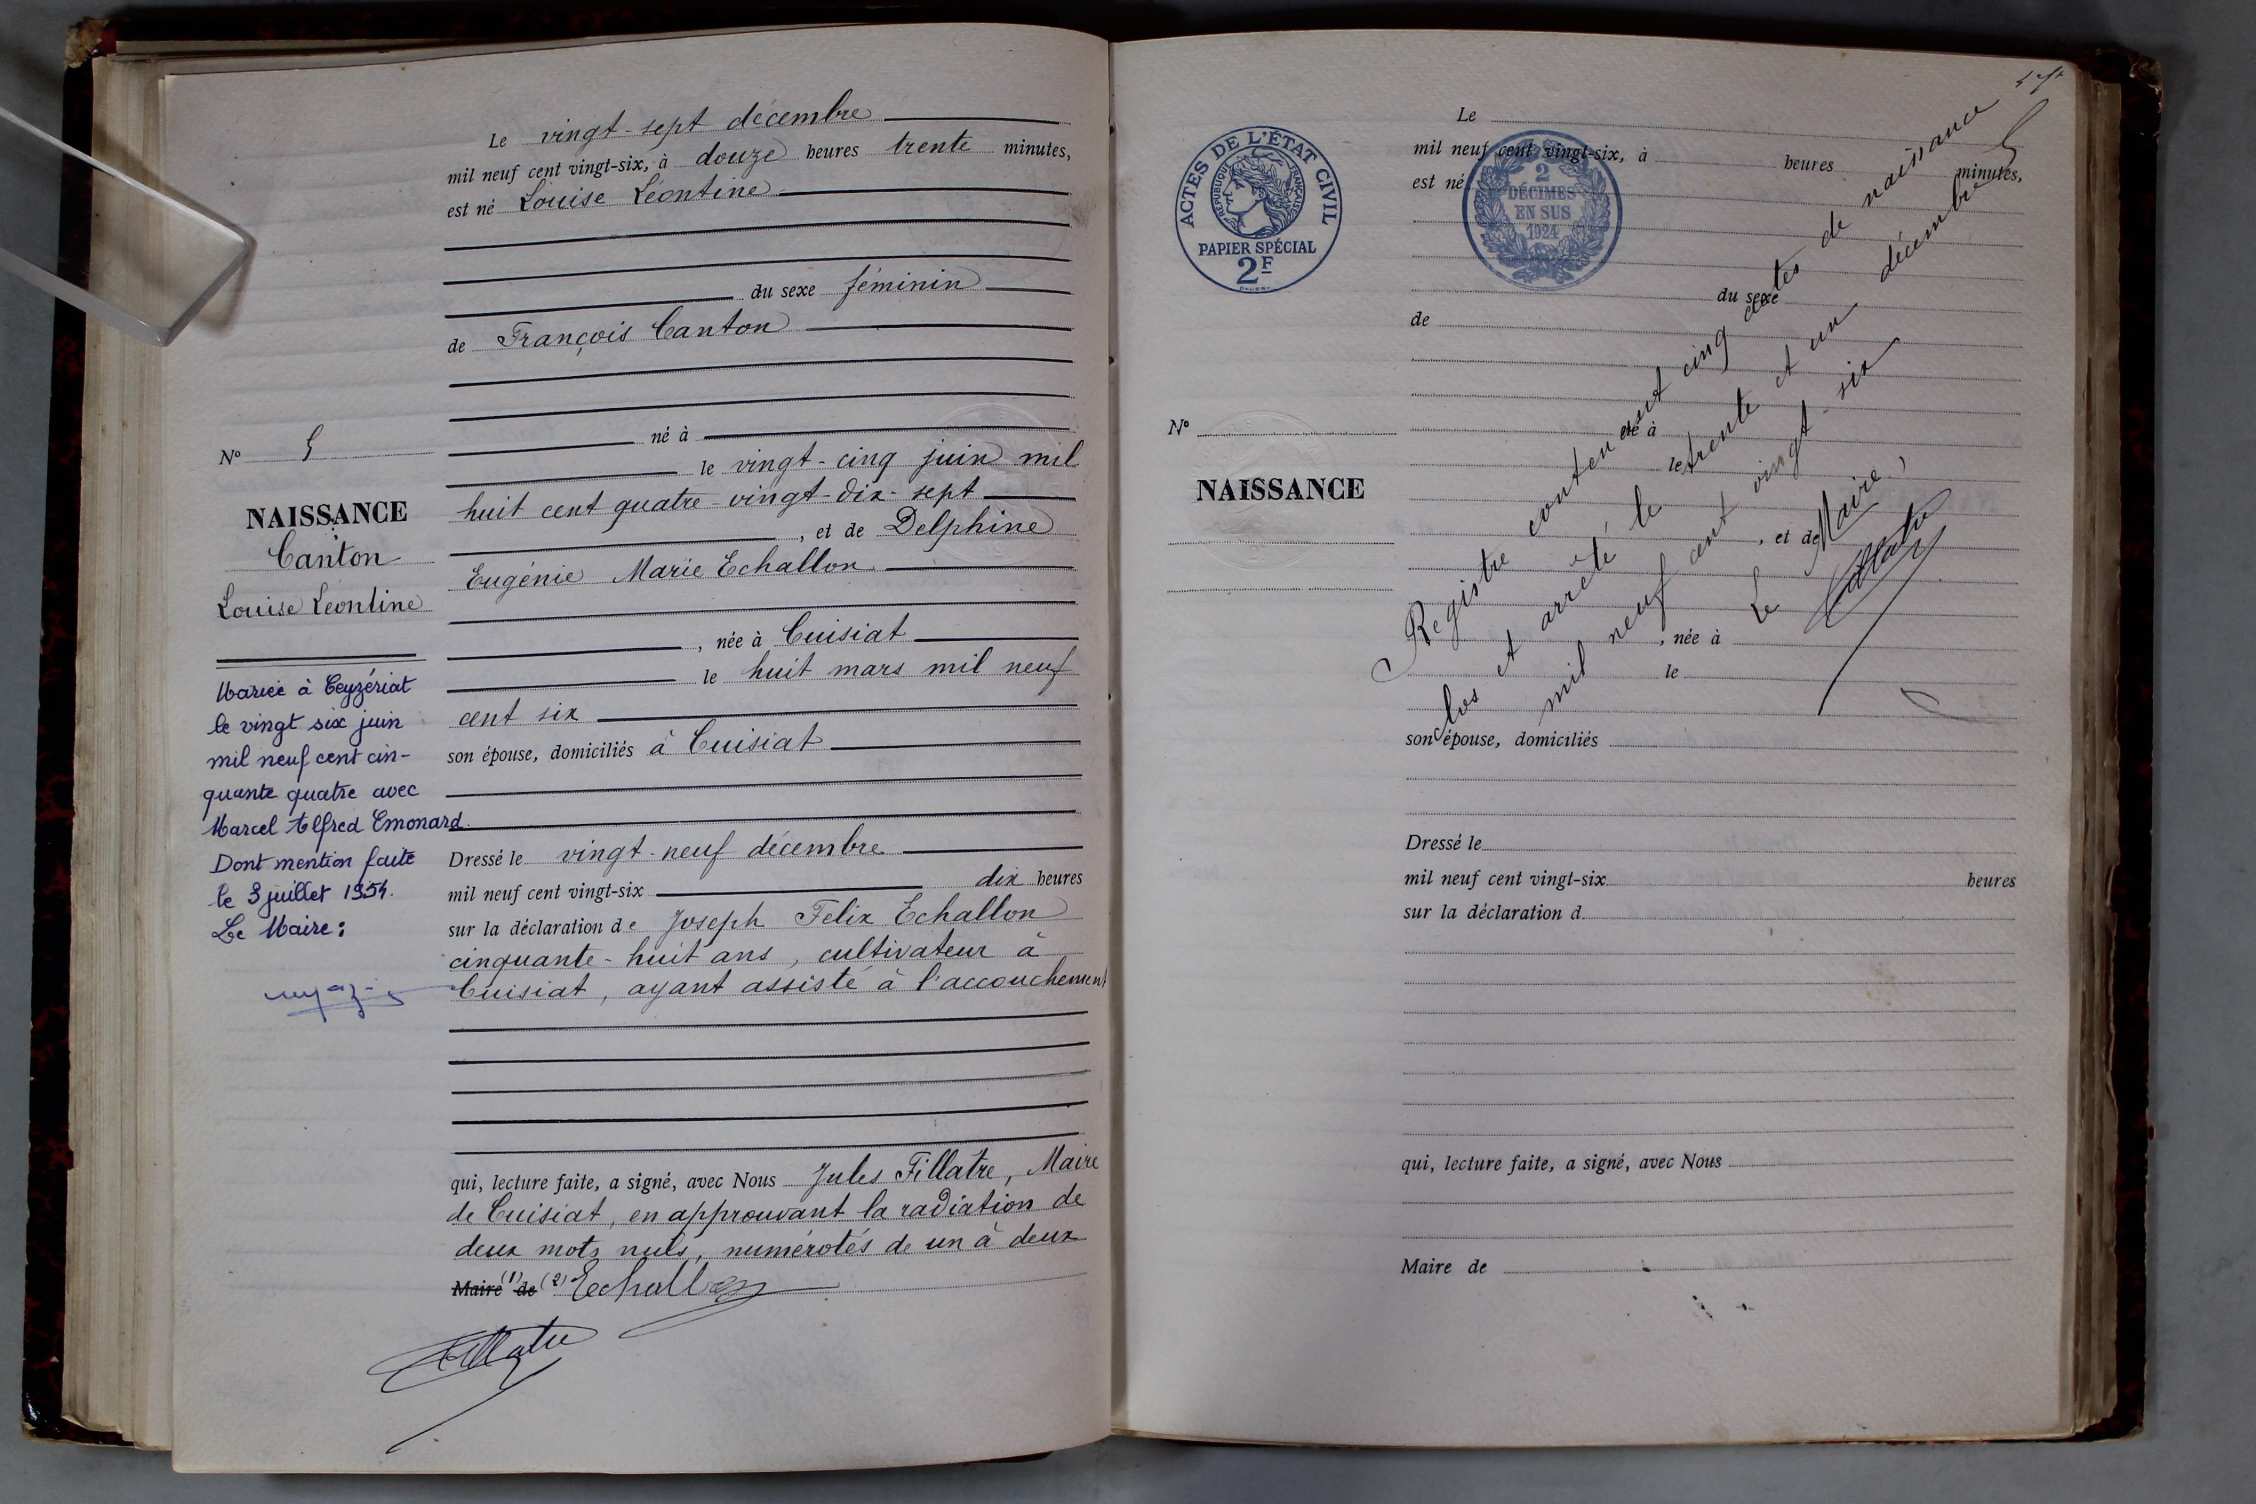 Le vingt-sept décembre
mil neuf cent vingt-six, à douze heures trente minutes,
est né Louise Léontine
du sexe féminin
de François Canton
né à
le vingt-cinq juin mil
huit cent quatre-vingt-dix-sept
, et de Delphine
Eugénie Marie Echallon
, née à Cuisiat
le huit mars mil neuf
cent six
son épouse, domiciliés à Cuisiat
Dressé le vingt-neuf décembre
mil neuf cent vingt-six dix heures
sur la déclaration de Joseph Felix Echallon
cinquante-huit ans, cultivateur à
Cuisiat, ayant assisté à l'accouchement
qui, lecture faite, a signé, avec Nous Jules Fillatre, Maire
de Cuisiat, en approuvant la radiation de
deux mots nuls, numérotés de un à deux
Maire (1) de (2) Echallon
Fillatre
N° 5
NAISSANCE
Canton
Louise Léontine
Mariée à Ceyzériat
le vingt six juin
mil neuf cent cin-
quante quatre avec
Marcel Alfred Emonard.
Dont mention faite
le 3 juillet 1954.
Le Maire:
ACTES DE L'ÉTAT CIVIL
RÉPUBLIQUE FRANÇAISE
PAPIER SPÉCIAL
2F
2
DÉCIMES
EN SUS
1924
N°
NAISSANCE
Le
mil neuf cent vingt-six, à heures minutes,
est né
du sexe
de
né à
le
, et de
, née à
le
son épouse, domiciliés
Dressé le
mil neuf cent vingt-six heures
sur la déclaration d
qui, lecture faite, a signé, avec Nous
Maire de
Registre contenant cinq actes de naissance
clos et arrêté le trente et un décembre
mil neuf cent vingt-six
Le Maire,
Fillatre